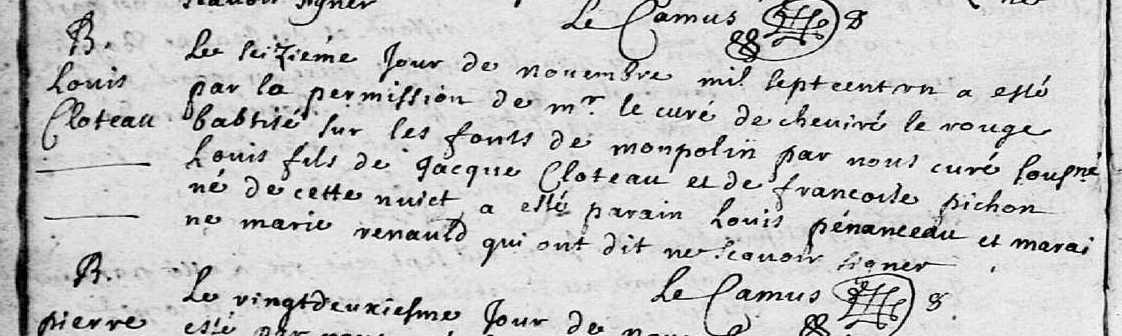 scavoir signer
Le Camus
B.
Louis
Cloteau
Le seizième Jour de novembre mil septcent vn a esté
par la permission de mr le curé de cheviré le rouge
babtisé sur les fonts de monpolin par nous curé sousné
Louis fils de Jacque Cloteau et de francoise pichon
né de cette nuict a esté parain Louis pénanceau et marai
ne marie renauld qui ont dit ne scavoir signer
Le Camus
B.
pierre
Le vingtdeuxiesme Jour de
esté par nous